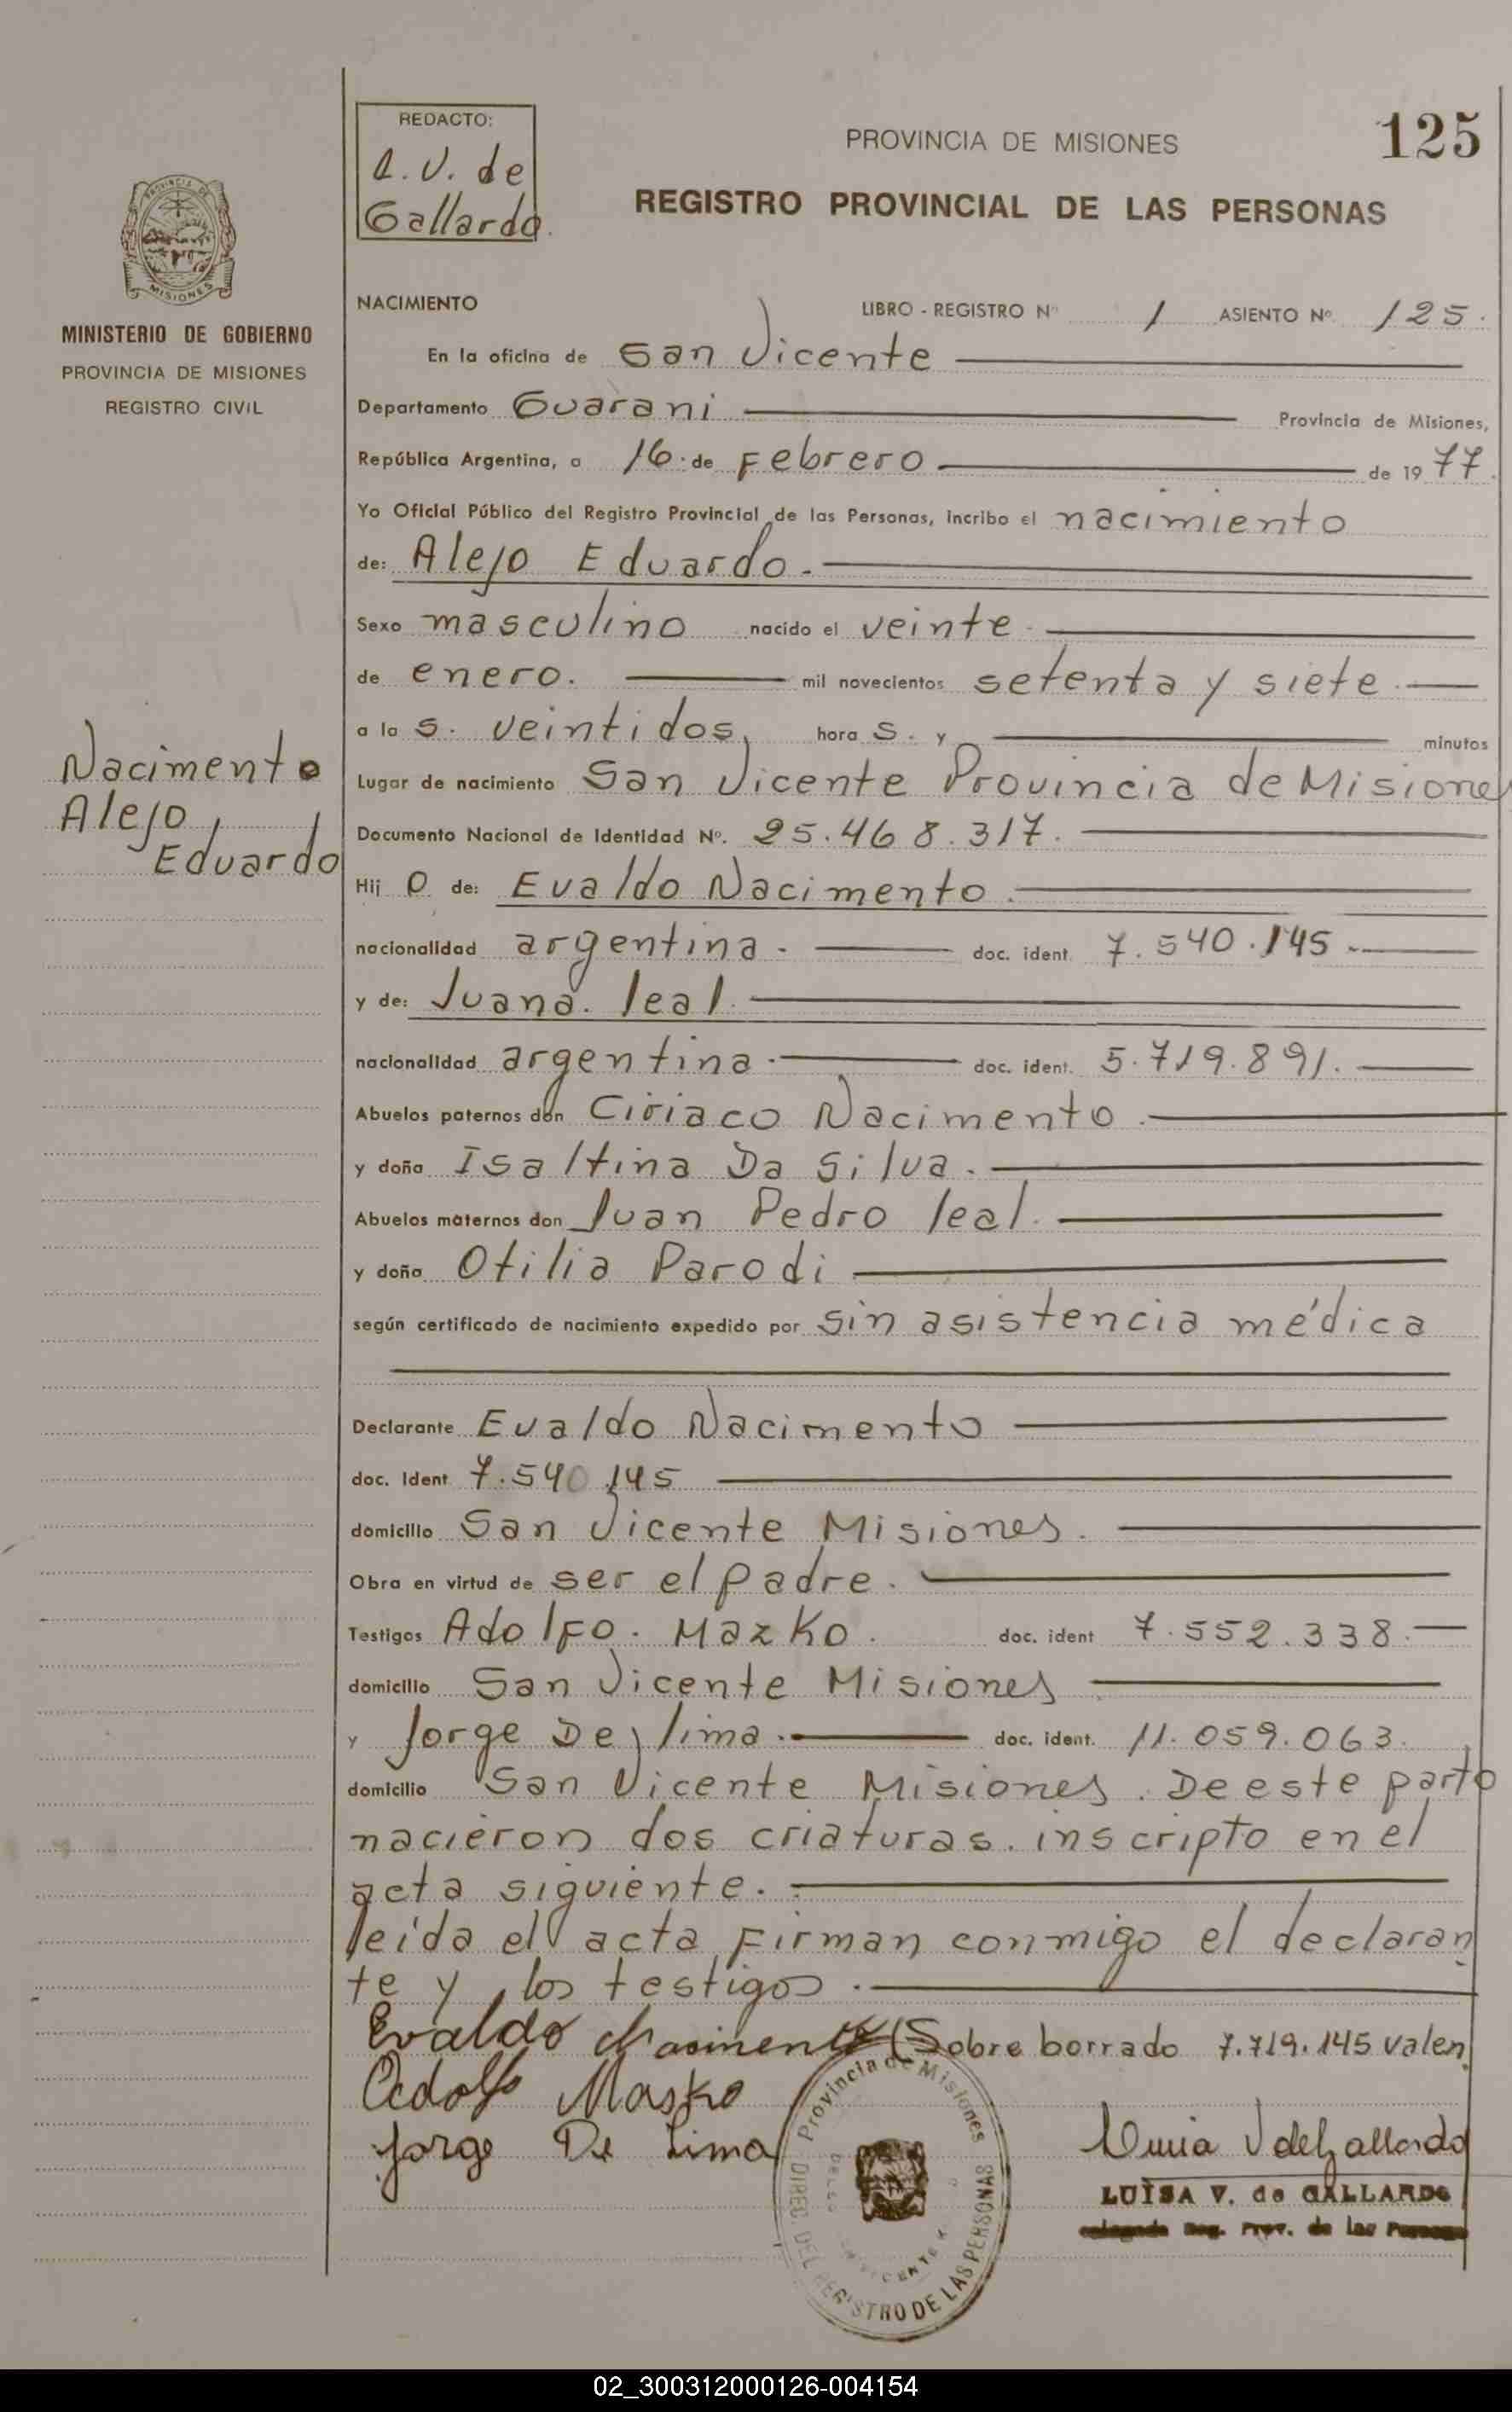 REDACTO:
L. V. de
Gallardo.
PROVINCIA DE MISIONES
125
REGISTRO PROVINCIAL DE LAS PERSONAS
PROVINCIA DE
MISIONES
MINISTERIO DE GOBIERNO
PROVINCIA DE MISIONES
REGISTRO CIVIL
NACIMIENTO LIBRO - REGISTRO Nº 1 ASIENTO Nº 125.
En la oficina de San Vicente
Departamento Guarani Provincia de Misiones,
República Argentina, a 16. de Febrero de 1977.
Yo Oficial Público del Registro Provincial de las Personas, incribo el nacimiento
de: Alejo Eduardo.
Sexo masculino nacido el veinte.
de enero. mil novecientos setenta y siete.
a las. veintidos, horas. y minutos
Lugar de nacimiento San Vicente Provincia de Misiones
Documento Nacional de Identidad Nº. 25.468.317.
Hijo de: Evaldo Nacimento.
nacionalidad argentina. doc. ident. 7.540.145.
y de: Juana. leal.
nacionalidad argentina. doc. ident. 5.719.891.
Abuelos paternos don Ciriaco Nacimento.
y doña Isaltina Da Silva.
Abuelos maternos don Juan Pedro leal.
y doña Otilia Parodi
según certificado de nacimiento expedido por sin asistencia médica
Declarante Evaldo Nacimento
doc. Ident 7.540.145
domicilio San Vicente Misiones.
Obra en virtud de ser el padre.
Testigos Adolfo. Mazko. doc. ident 7.552.338.
domicilio San Vicente Misiones
y Jorge De lima. doc. ident. 11.059.063.
domicilio San Vicente Misiones. De este parto
nacieron dos criaturas. inscripto en el
acta siguiente.
leída el acta firman conmigo el declaran
te y los testigos.
Nacimento
Alejo,
Eduardo
Evaldo Nacimento (Sobre borrado 7.719.145 valen.
Adolfo Masko
Jorge De Lima
Provincia de Misiones
DIREC. DEL REGISTRO DE LAS PERSONAS
Luisa V de Gallardo
LUISA V. de GALLARDO
Reg. Prov. de las Personas
02_300312000126-004154